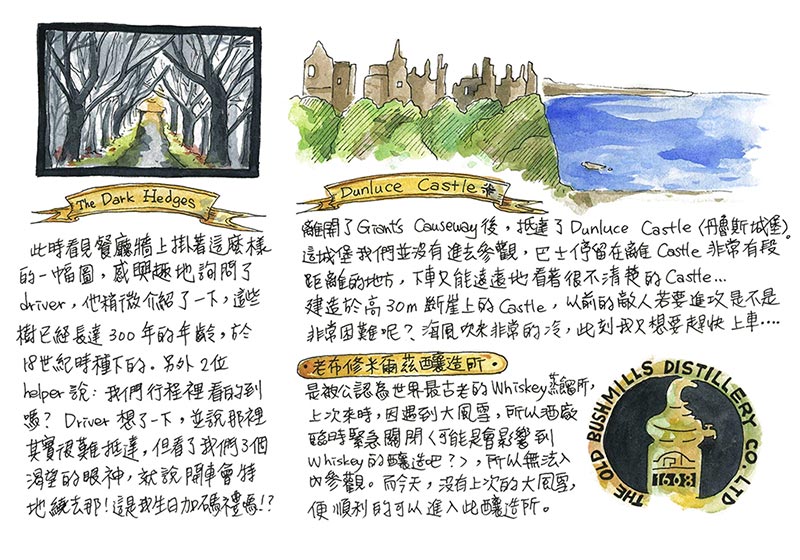 The Dark Hedges
此時看見餐廳牆上掛著這麼樣
的一幅圖，感興趣地詢問了
driver，他稍微介紹了一下，這些
樹已經長達300年的年齡，於
18世紀時種下的．另外2位
helper說：我們行程裡看的到
嗎？Driver 想了一下，並說那裡
其實很難抵達，但看了我們3個
渴望的眼神，就說開車會特
地繞去那！這是我生日加碼禮嗎!?
Dunluce Castle
離開了Giant's Causeway後，抵達了Dunluce Castle〈丹魯斯城堡〉。
這城堡我們並沒有進去參觀，巴士停留在離Castle非常有段
距離的地方，下車只能遠遠地看著很不清楚的Castle...
建造於高30m斷崖上的Castle，以前的敵人若要進攻是不是
非常困難呢？海風吹來非常的冷，此刻我只想要趕快上車....
老布修米爾茲釀造所
是被公認為世界最古老的Whiskey蒸餾所，
上次來時，因遇到大風雪，所以酒廠
臨時緊急關閉〈可能是會影響到
Whiskey的釀造吧？〉，所以無法入
內參觀。而今天，沒有上次的大風雪，
便順利的可以進入此釀造所。
THE OLD BUSHMILLS DISTILLERY CO. LTD
1608